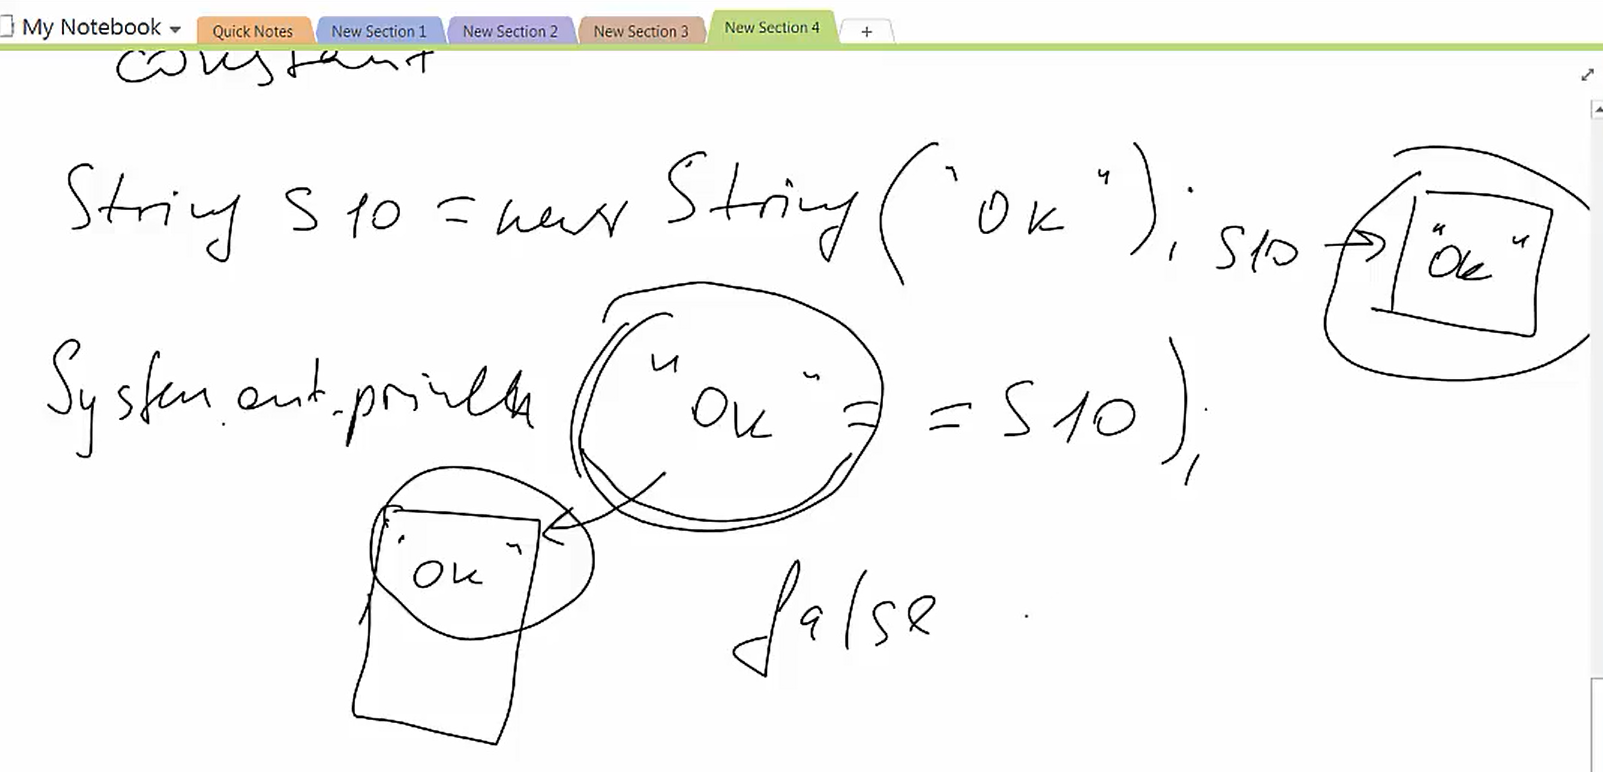 My Notebook Quick Notes New Section 1 New Section 2 New Section 3 New Section 4 +
constant
String S10 = new String("OK"); S10 → "OK"
System.out.println("OK" == S10);
"OK"
false